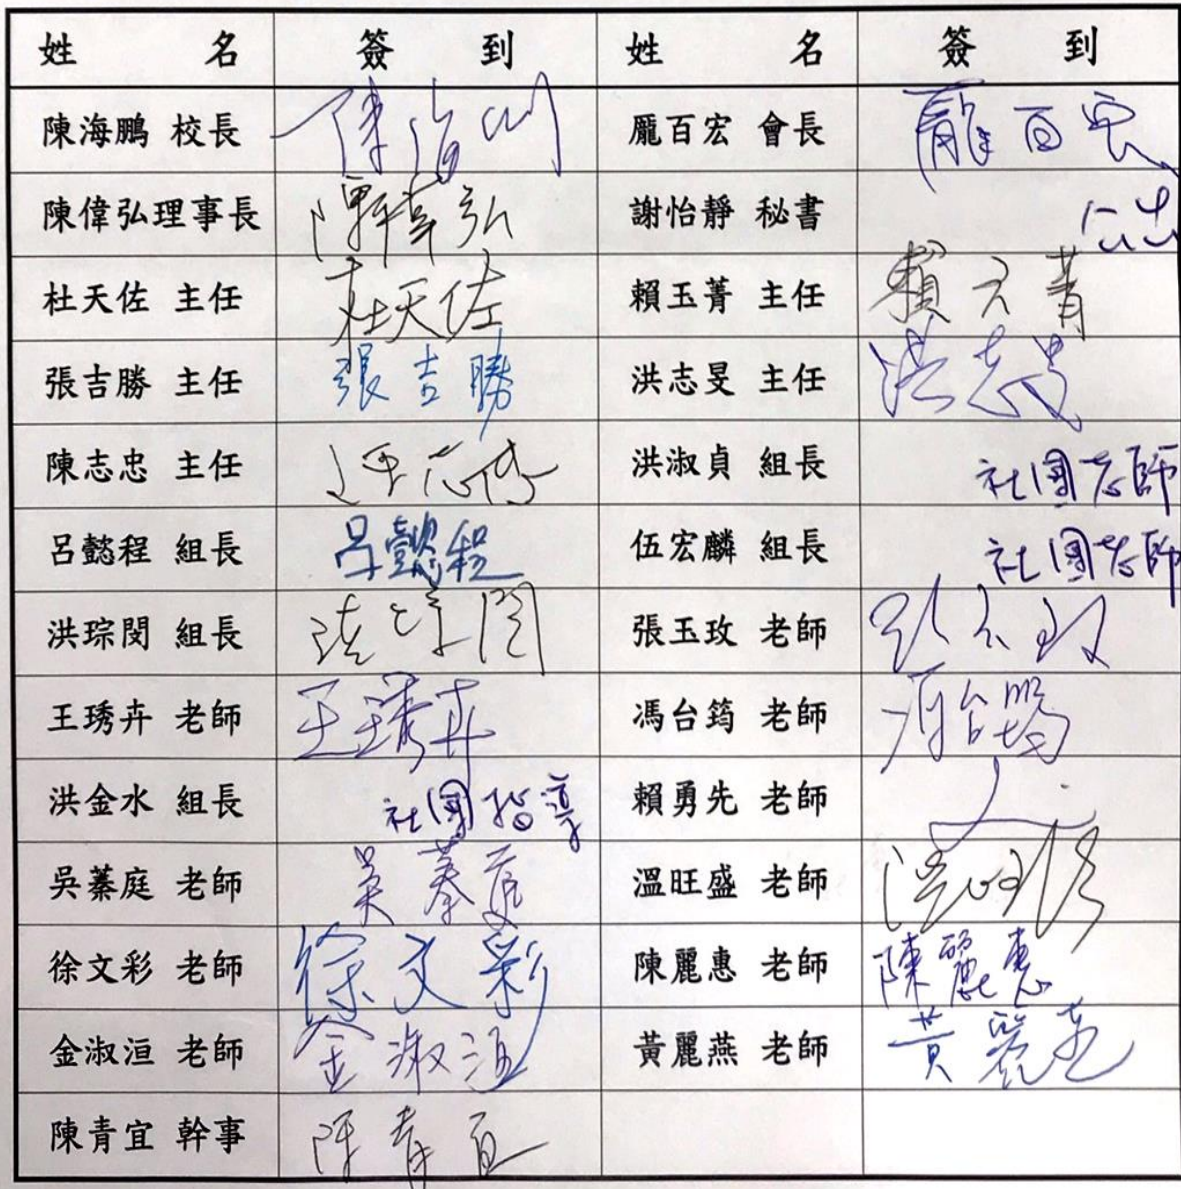 姓 名 簽 到 姓 名 簽 到
陳海鵬 校長 龎百宏 會長 龎百宏
陳偉弘理事長 陳偉弘 謝怡靜 秘書 公出
杜天佐 主任 杜天佐 賴玉菁 主任 賴玉菁
張吉勝 主任 張吉勝 洪志旻 主任 洪志旻
陳志忠 主任 洪淑貞 組長 社團老師
呂懿程 組長 呂懿程 伍宏麟 組長 社團老師
洪琮閔 組長 洪琮閔 張玉玫 老師 張玉玫
王琇卉 老師 王琇卉 馮台筠 老師
洪金水 組長 社團指導 賴勇先 老師
吳蓁庭 老師 吳蓁庭 溫旺盛 老師
徐文彩 老師 徐文彩 陳麗惠 老師 陳麗惠
金淑洹 老師 金淑洹 黃麗燕 老師 黃麗燕
陳青宜 幹事 陳青宜